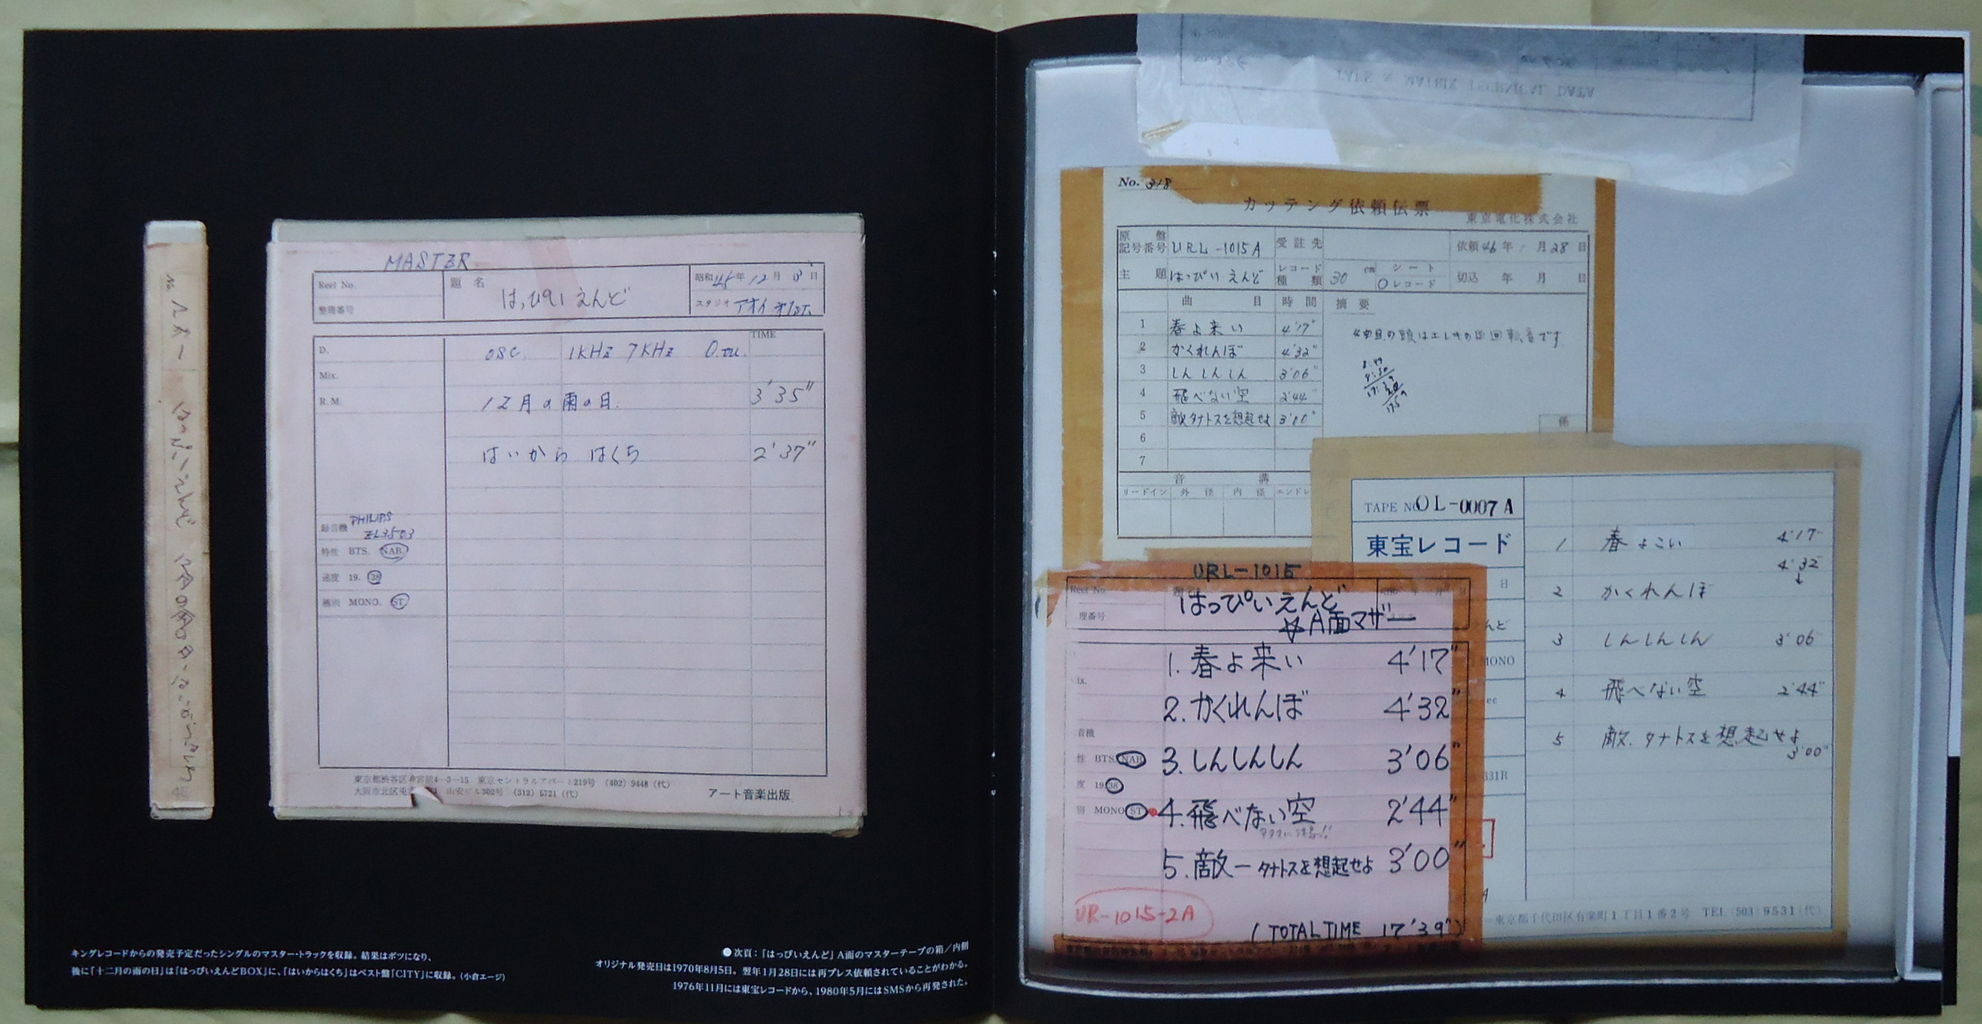 MASTER
Reel No.
整理番号
題名
はっぴいえんど
昭和45年12月
スタジオ アオイ
TIME
D.
OSC. 1KHz 7KHz
Mix.
R.M.
12月の雨の日. 3'35"
はいから はくち 2'37"
録音機 PHILIPS
特性 BTS. NAB
速度 19. 38
種別 MONO. ST.
東京都渋谷区神宮前4-3-15 東京セントラルアパート219号 (402) 9448 (代)
大阪市北区 山安ビル302号 (312) 5721 (代)
アート音楽出版
キングレコードからの発売予定だったシングルのマスター・トラックを収録。結果はボツになり、
後に「十二月の雨の日」は「はっぴいえんどBOX」に、「はいからはくち」はベスト盤「CITY」に収録。(小倉エージ)
●次頁:「はっぴいえんど」A面のマスターテープの箱/内側
オリジナル発売日は1970年8月5日。翌年1月28日には再プレス依頼されていることがわかる。
1976年11月には東宝レコードから、1980年5月にはSMSから再発された。
No. 318
カッテング依頼伝票
東京電化株式会社
原盤記号番号 URL-1015A
受註先
依頼 46年1月28日
主題 はっぴいえんど
レコード種類 30 cm シート レコード
切込 年 月 日
曲目 時間 摘要
1 春よ来い 4'17"
2 かくれんぼ 4'32"
3 しんしんしん 3'06"
4 飛べない空 2'44"
5 敵タナトスを想起せよ 3'00"
6
7
係
音溝
リードイン 外径 内径
TAPE NO. OL-0007A
東宝レコード
1 春よこい 4'17"
4'32"
2 かくれんぼ
3 しんしんしん 3'06
4 飛べない空 2'44"
5 敵.タナトスを想起せよ
3'00"
東京都千代田区有楽町1丁目1番2号 TEL (503) 9531 (代)
URL-1015
はっぴいえんど
A面マザー
1. 春よ来い 4'17"
2. かくれんぼ 4'32"
3. しんしんしん 3'06"
4. 飛べない空 2'44"
5. 敵-タナトスを想起せよ 3'00"
UR-1015-2A
(TOTAL TIME 17'39")